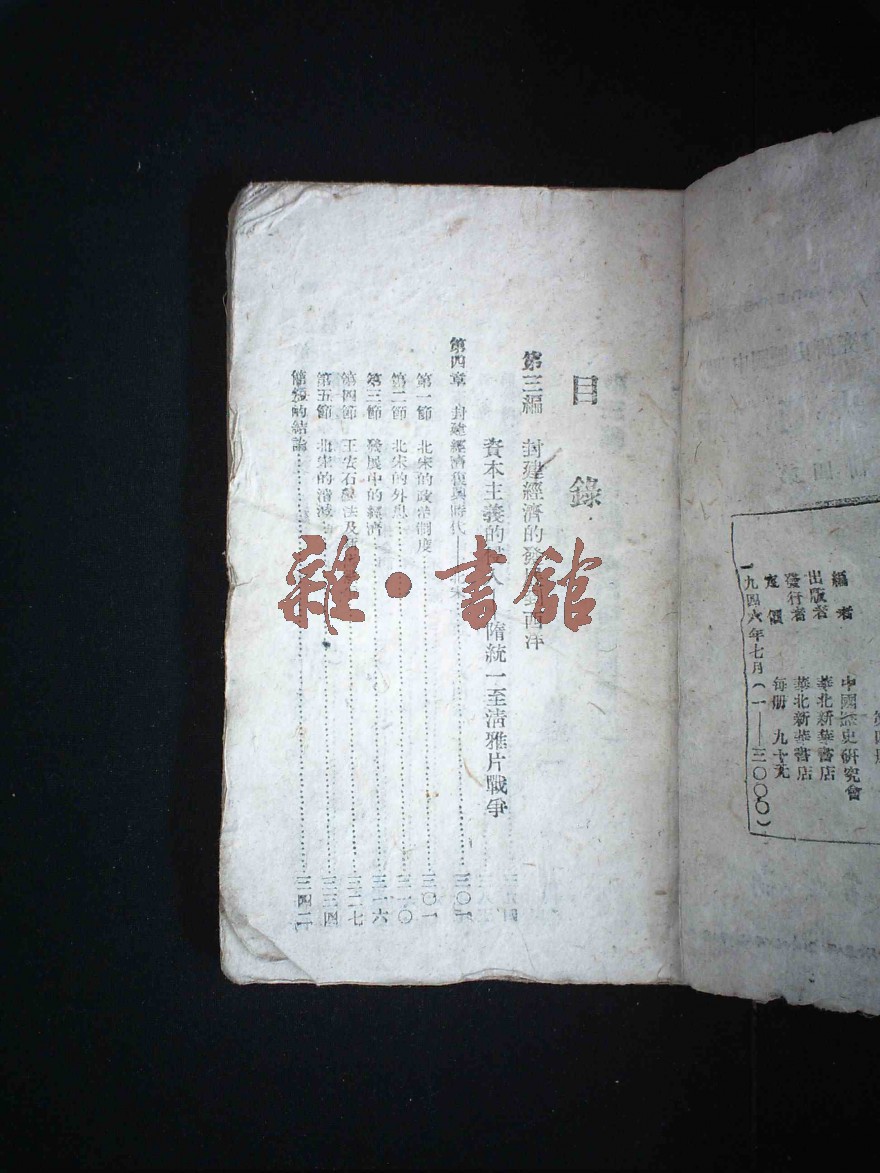 第四册
編者 中國歷史研究會
出版者 華北新華書店
發行者 華北新華書店
定價 每册 九十元
一九四六年七月(一——三〇〇〇)
目錄
第三編 封建經濟的發展到西洋
資本主義的 入 隋統一至清雅片戰爭
第四章 封建經濟復興時代—— 三〇一
第一節 北宋的政治制度 三〇一
第二節 北宋的外患 三一〇
第三節 發展中的經濟 三一六
第四節 王安石變法及 三二七
第五節 北宋的潰滅 三三四
簡短的結論 三四二
雜·書館